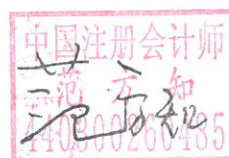 中国注册会计师
范方知
440300260485